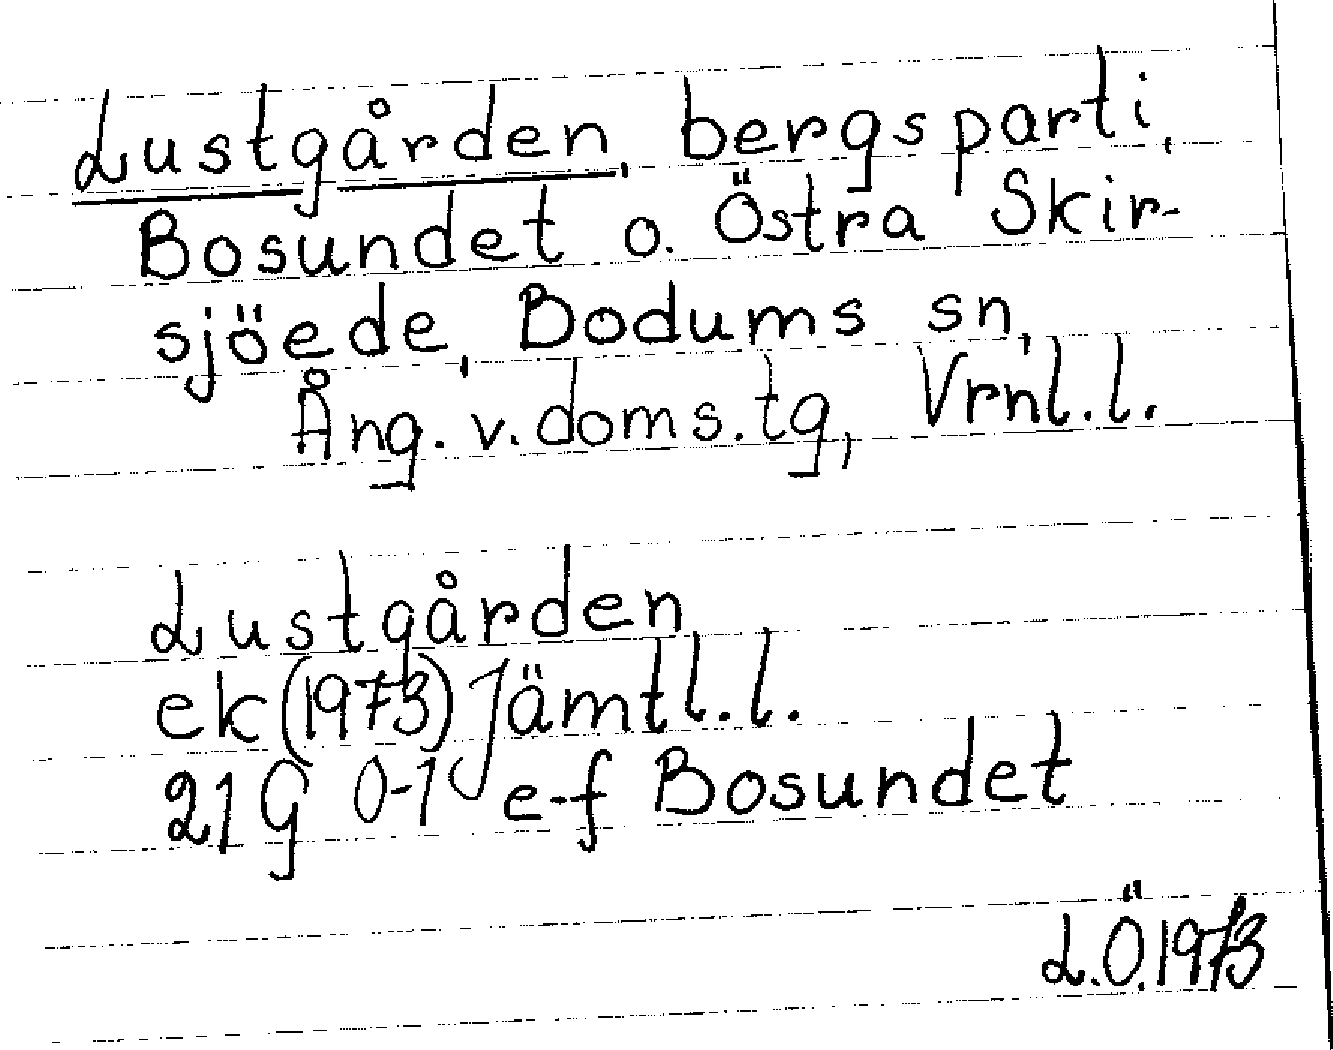 Lustgården, bergsparti,
Bosundet o. Östra Skir-
sjöede, Bodums sn,
Ång. v. doms.tg, Vrnl.l.
Lustgården
ek (1973) Jämtl.l.
21G 0-1 e-f Bosundet
L.Ö. 1973